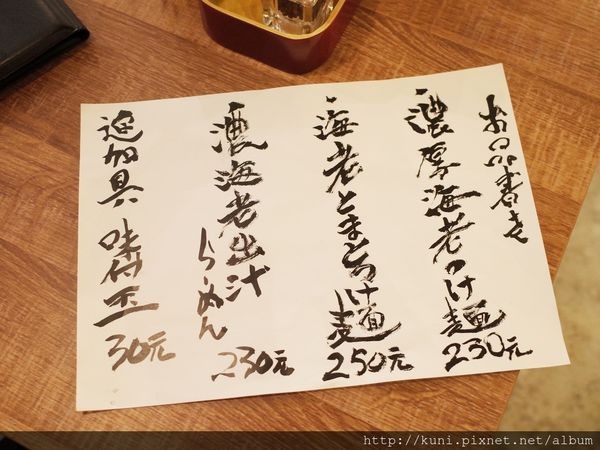 お品書き
一、濃厚海老つけ麺 230元
一、海老とまとつけ麺 250元
一、濃海老出汁らーめん 230元
追加具 味付玉 30元
http://kuni.pixnet.net/album